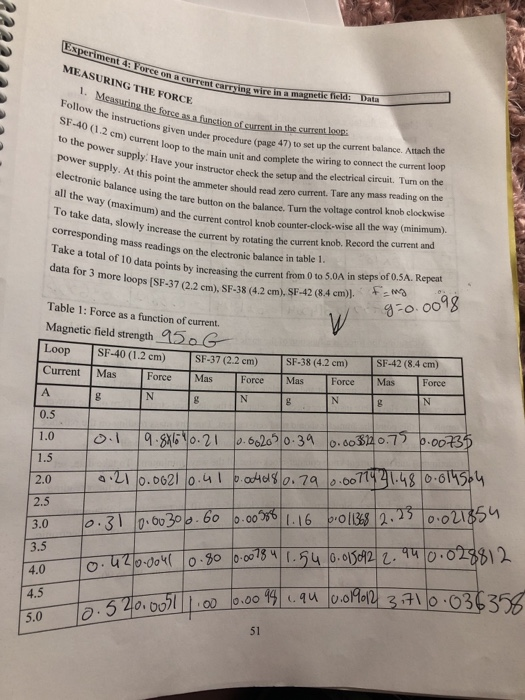 Experiment 4: Force on a current carrying wire in a magnetic field: Data
MEASURING THE FORCE
1. Measuring the force as a function of current in the current loop:
Follow the instructions given under procedure (page 47) to set up the current balance. Attach the
SF-40 (1.2 cm) current loop to the main unit and complete the wiring to connect the current loop
to the power supply. Have your instructor check the setup and the electrical circuit. Turn on the
power supply. At this point the ammeter should read zero current. Tare any mass reading on the
electronic balance using the tare button on the balance. Turn the voltage control knob clockwise
all the way (maximum) and the current control knob counter-clock-wise all the way (minimum).
To take data, slowly increase the current by rotating the current knob. Record the current and
corresponding mass readings on the electronic balance in table 1.
Take a total of 10 data points by increasing the current from 0 to 5.0A in steps of 0.5A. Repeat
data for 3 more loops [SF-37 (2.2 cm), SF-38 (4.2 cm), SF-42 (8.4 cm)].
F=mg
g=0.0098
Table 1: Force as a function of current.
Magnetic field strength 950G
Loop SF-40 (1.2 cm) SF-37 (2.2 cm) SF-38 (4.2 cm) SF-42 (8.4 cm)
Current Mas Force Mas Force Mas Force Mas Force
A g N g N g N g N
0.5
1.0 0.1 0.21 0.39 0.75 0.00735
1.5
2.0 0.21 0.0021 0.41 0.79 1.48 0.014504
2.5
3.0 0.31 0.0030 0.60 0.00588 1.16 0.011368 2.23 0.021854
3.5
4.0 0.42 0.0041 0.80 0.00784 1.54 0.015092 2.94 0.028812
4.5
5.0 0.52 0.0051 1.00 0.0098 1.94 0.019012 3.71 0.036358
51